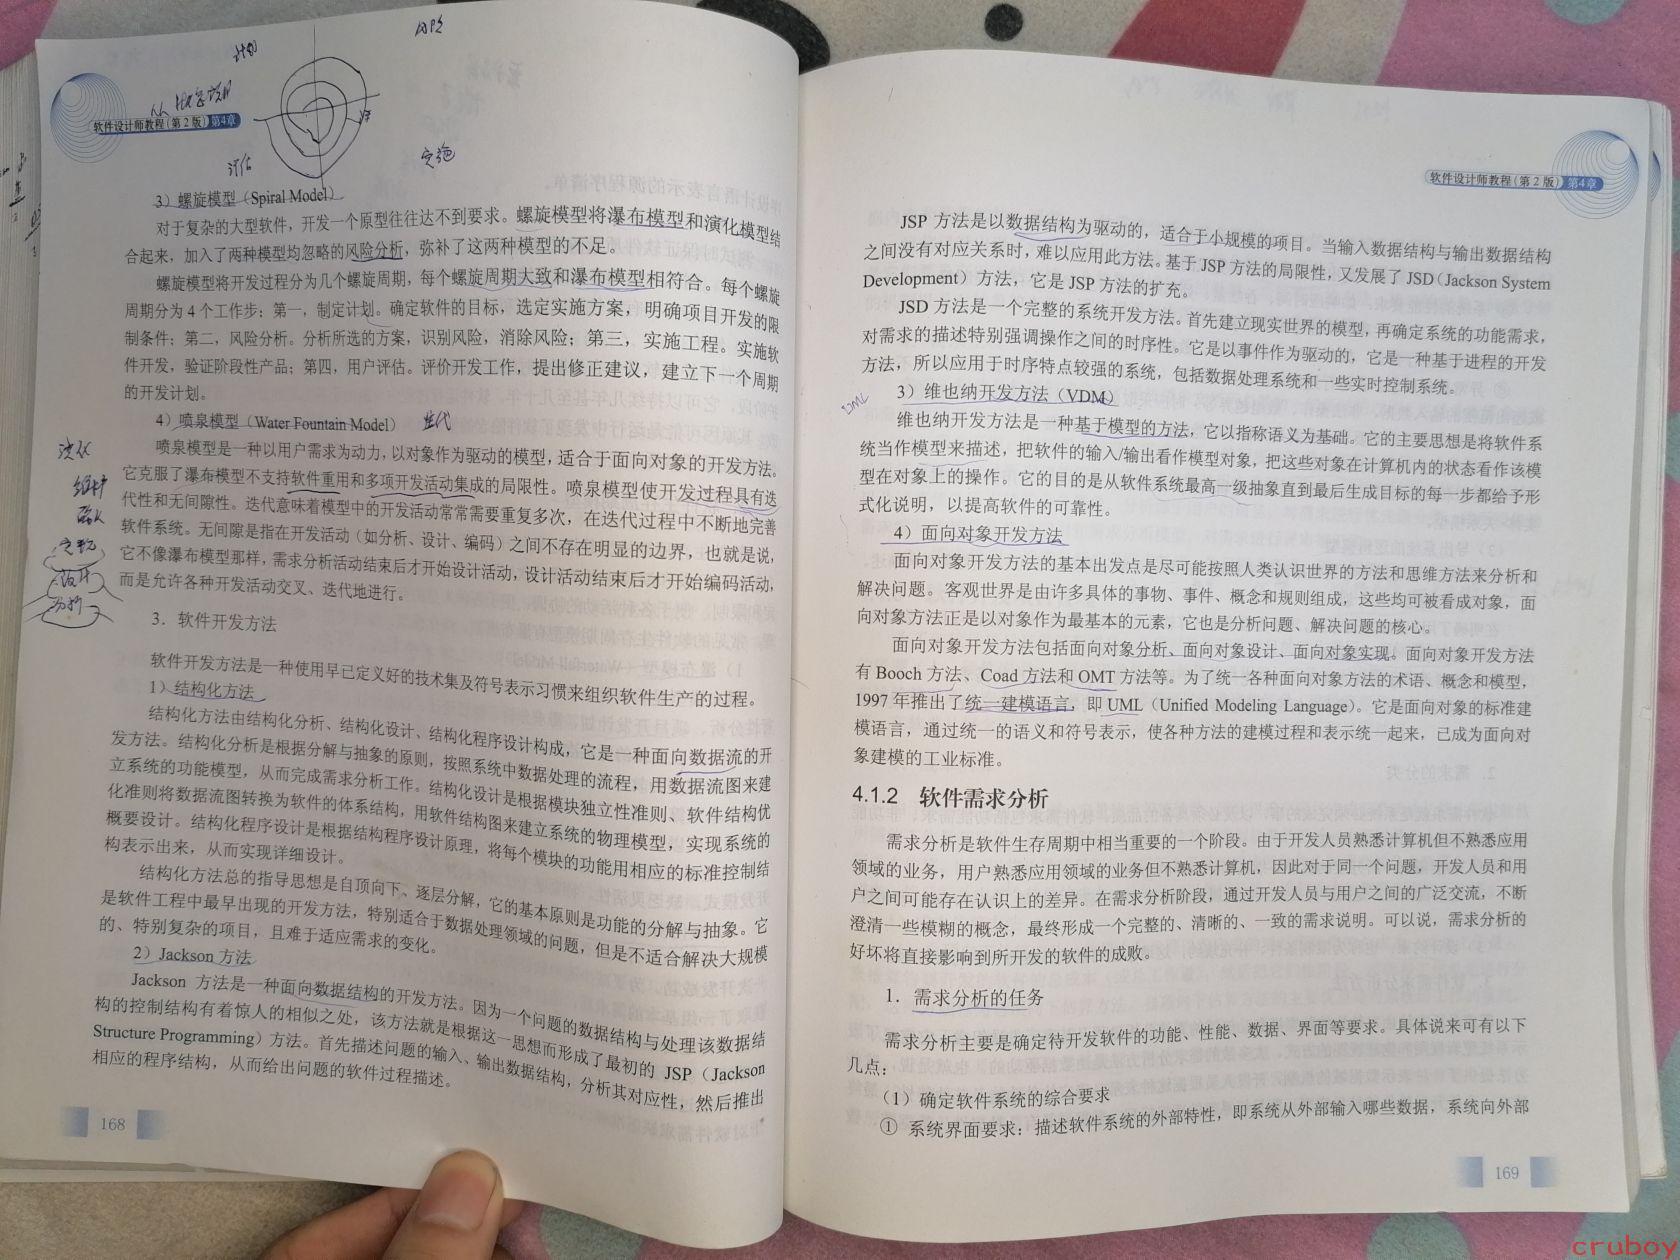 计划
风险
软件设计师教程(第2版) 第4章
评估
实施
3）螺旋模型（Spiral Model）
对于复杂的大型软件，开发一个原型往往达不到要求。螺旋模型将瀑布模型和演化模型结
合起来，加入了两种模型均忽略的风险分析，弥补了这两种模型的不足。
螺旋模型将开发过程分为几个螺旋周期，每个螺旋周期大致和瀑布模型相符合。每个螺旋
周期分为 4 个工作步：第一，制定计划。确定软件的目标，选定实施方案，明确项目开发的限
制条件；第二，风险分析。分析所选的方案，识别风险，消除风险；第三，实施工程。实施软
件开发，验证阶段性产品；第四，用户评估。评价开发工作，提出修正建议，建立下一个周期
的开发计划。
4）喷泉模型（Water Fountain Model） 迭代
喷泉模型是一种以用户需求为动力，以对象作为驱动的模型，适合于面向对象的开发方法。
它克服了瀑布模型不支持软件重用和多项开发活动集成的局限性。喷泉模型使开发过程具有迭
代性和无间隙性。迭代意味着模型中的开发活动常常需要重复多次，在迭代过程中不断地完善
软件系统。无间隙是指在开发活动（如分析、设计、编码）之间不存在明显的边界，也就是说，
它不像瀑布模型那样，需求分析活动结束后才开始设计活动，设计活动结束后才开始编码活动，
而是允许各种开发活动交叉、迭代地进行。
演化
维护
实现
设计
分析
3．软件开发方法
软件开发方法是一种使用早已定义好的技术集及符号表示习惯来组织软件生产的过程。
1）结构化方法
结构化方法由结构化分析、结构化设计、结构化程序设计构成，它是一种面向数据流的开
发方法。结构化分析是根据分解与抽象的原则，按照系统中数据处理的流程，用数据流图来建
立系统的功能模型，从而完成需求分析工作。结构化设计是根据模块独立性准则、软件结构优
化准则将数据流图转换为软件的体系结构，用软件结构图来建立系统的物理模型，实现系统的
概要设计。结构化程序设计是根据结构程序设计原理，将每个模块的功能用相应的标准控制结
构表示出来，从而实现详细设计。
结构化方法总的指导思想是自顶向下、逐层分解，它的基本原则是功能的分解与抽象。它
是软件工程中最早出现的开发方法，特别适合于数据处理领域的问题，但是不适合解决大规模
的、特别复杂的项目，且难于适应需求的变化。
2）Jackson 方法
Jackson 方法是一种面向数据结构的开发方法。因为一个问题的数据结构与处理该数据结
构的控制结构有着惊人的相似之处，该方法就是根据这一思想而形成了最初的 JSP（Jackson
Structure Programming）方法。首先描述问题的输入、输出数据结构，分析其对应性，然后推出
相应的程序结构，从而给出问题的软件过程描述。
168
软件设计师教程(第2版) 第4章
JSP 方法是以数据结构为驱动的，适合于小规模的项目。当输入数据结构与输出数据结构
之间没有对应关系时，难以应用此方法。基于 JSP 方法的局限性，又发展了 JSD（Jackson System
Development）方法，它是 JSP 方法的扩充。
JSD 方法是一个完整的系统开发方法。首先建立现实世界的模型，再确定系统的功能需求，
对需求的描述特别强调操作之间的时序性。它是以事件作为驱动的，它是一种基于进程的开发
方法，所以应用于时序特点较强的系统，包括数据处理系统和一些实时控制系统。
3）维也纳开发方法（VDM）
维也纳开发方法是一种基于模型的方法，它以指称语义为基础。它的主要思想是将软件系
统当作模型来描述，把软件的输入/输出看作模型对象，把这些对象在计算机内的状态看作该模
型在对象上的操作。它的目的是从软件系统最高一级抽象直到最后生成目标的每一步都给予形
式化说明，以提高软件的可靠性。
4）面向对象开发方法
面向对象开发方法的基本出发点是尽可能按照人类认识世界的方法和思维方法来分析和
解决问题。客观世界是由许多具体的事物、事件、概念和规则组成，这些均可被看成对象，面
向对象方法正是以对象作为最基本的元素，它也是分析问题、解决问题的核心。
面向对象开发方法包括面向对象分析、面向对象设计、面向对象实现。面向对象开发方法
有 Booch 方法、Coad 方法和 OMT 方法等。为了统一各种面向对象方法的术语、概念和模型，
1997 年推出了统一建模语言，即 UML（Unified Modeling Language）。它是面向对象的标准建
模语言，通过统一的语义和符号表示，使各种方法的建模过程和表示统一起来，已成为面向对
象建模的工业标准。
4.1.2 软件需求分析
需求分析是软件生存周期中相当重要的一个阶段。由于开发人员熟悉计算机但不熟悉应用
领域的业务，用户熟悉应用领域的业务但不熟悉计算机，因此对于同一个问题，开发人员和用
户之间可能存在认识上的差异。在需求分析阶段，通过开发人员与用户之间的广泛交流，不断
澄清一些模糊的概念，最终形成一个完整的、清晰的、一致的需求说明。可以说，需求分析的
好坏将直接影响到所开发的软件的成败。
1．需求分析的任务
需求分析主要是确定待开发软件的功能、性能、数据、界面等要求。具体说来可有以下
几点：
（1）确定软件系统的综合要求
① 系统界面要求：描述软件系统的外部特性，即系统从外部输入哪些数据，系统向外部
169
cruboy